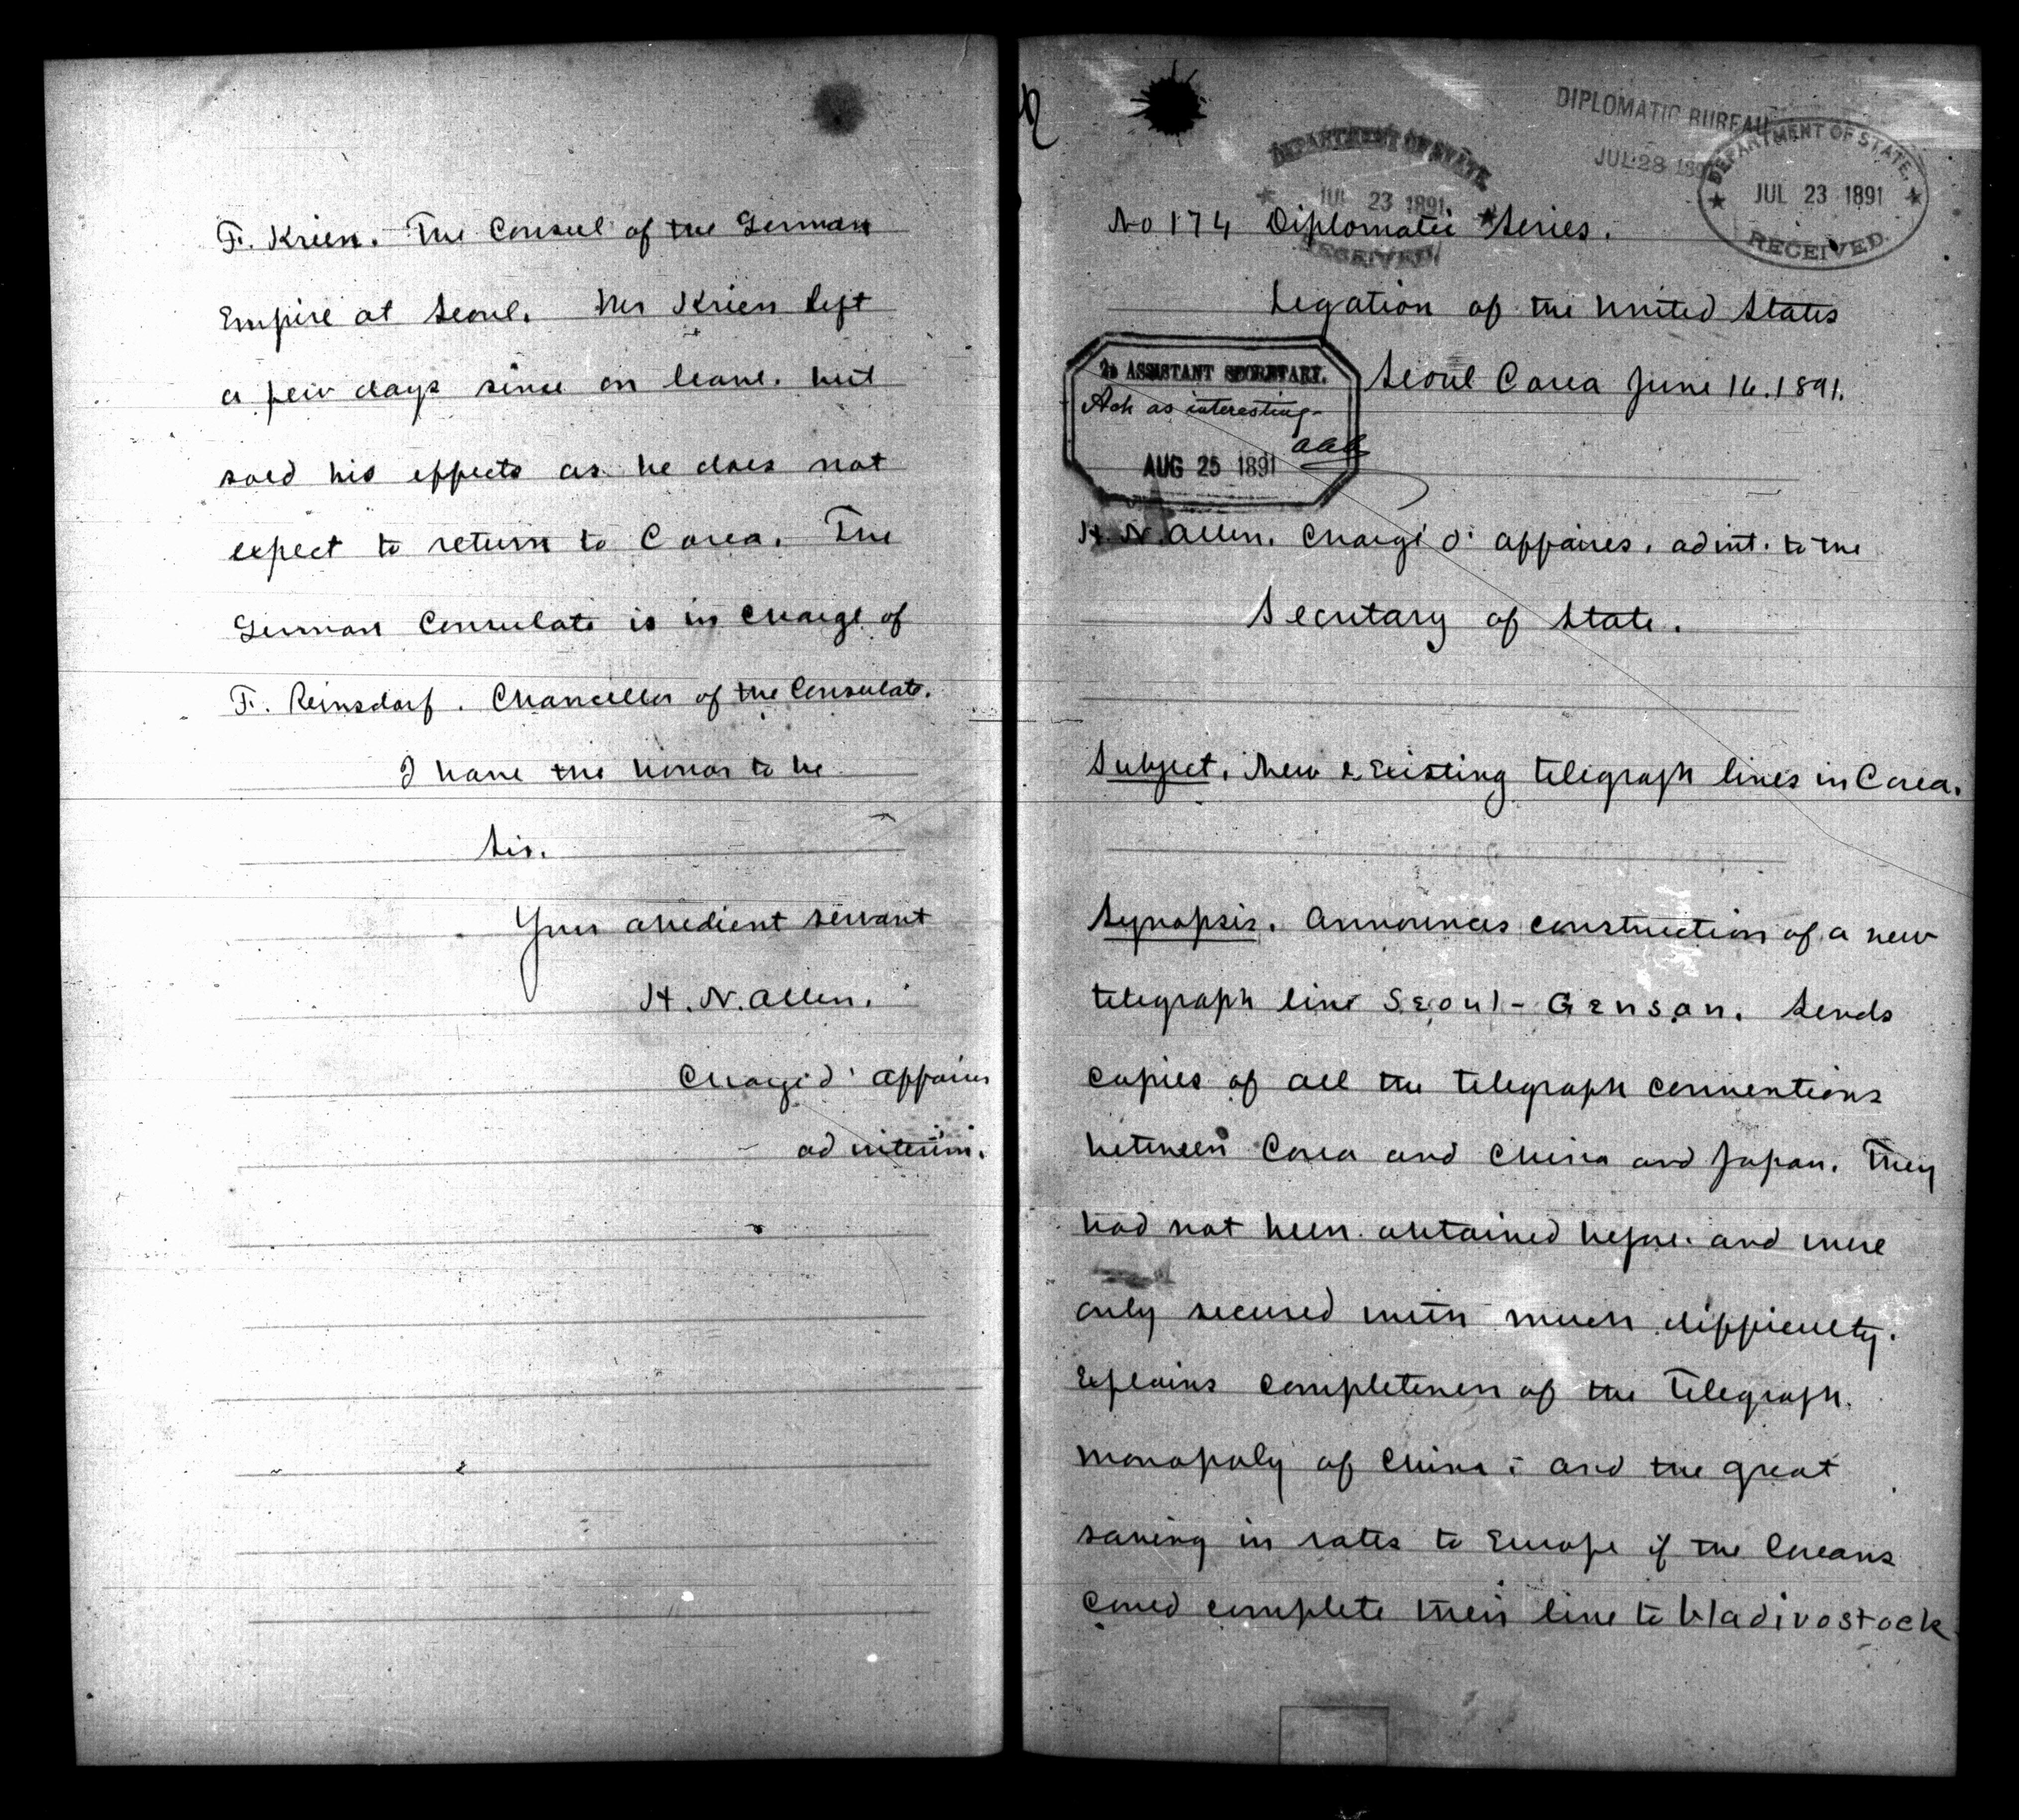 F. Krien. The Consul of the German
Empire at Seoul. Mr Krien left
a few days since on leave. but
sold his effects as he does not
expect to return to Corea. The
German Consulate is in charge of
F. Reinsdorf. Chancellor of the Consulate.
I have the honor to be
Sir.
Your obedient servant
H. N. Allen.
Chargé d' affaires
ad interim.
DIPLOMATIC BUREAU
JUL 28 189
DEPARTMENT OF STATE
JUL 23 1891
RECEIVED
DEPARTMENT OF STATE.
JUL 23 1891
RECEIVED.
No 174 Diplomatic Series.
Legation of the United States
Seoul Corea June 16. 1891.
2d ASSISTANT SECRETARY.
Ack as interesting-
aaa
AUG 25 1891
H. N. Allen. Chargé d' affaires. ad int. to the
Secretary of State.
Subject. New & Existing telegraph lines in Corea.
Synopsis. Announces construction of a new
telegraph line Seoul - Gensan. Sends
copies of all the telegraph conventions
between Corea and China and Japan. They
had not been obtained before. and were
only secured with much difficulty.
Explains completeness of the Telegraph
monopoly of China: and the great
saving in rates to Europe if the Coreans
could complete their line to Vladivostock